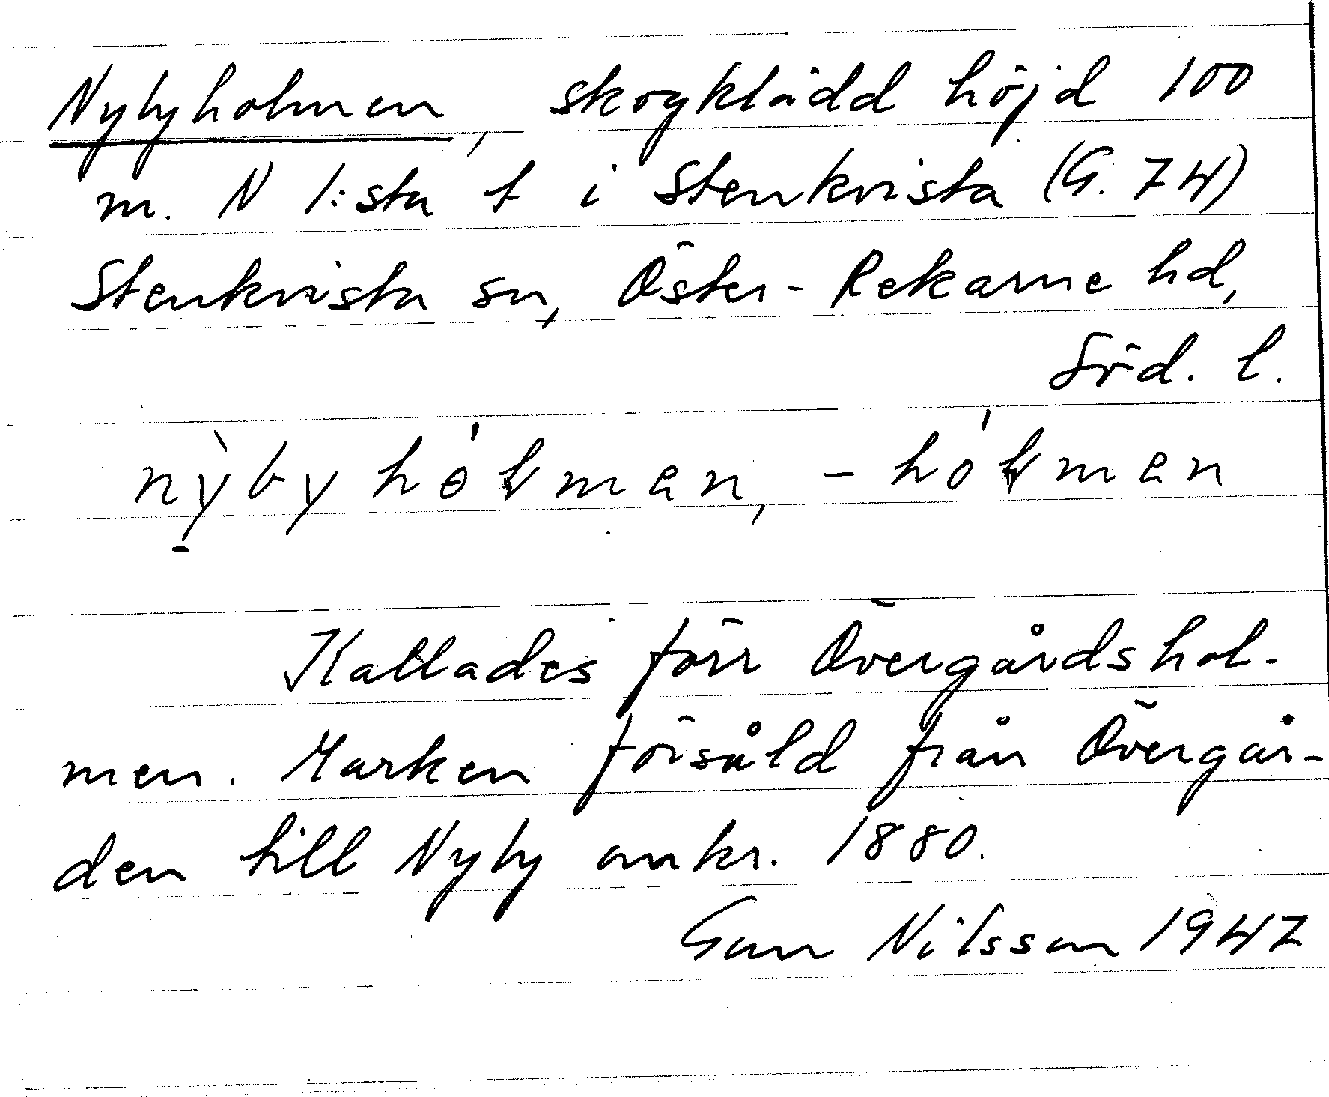 Nybyholmen, skogklädd höjd 100
m. N 1:sta t i Stenkvista (G. 74)
Stenkvista sn, Öster-Rekarne hd,
Söd. l.
nỳbyhɵ́ɫmen, -hóɫmen
Kallades förr Övergårdshol-
men. Marken försåld från Övergår-
den till Nyby omkr. 1880.
Gun Nilsson 1947